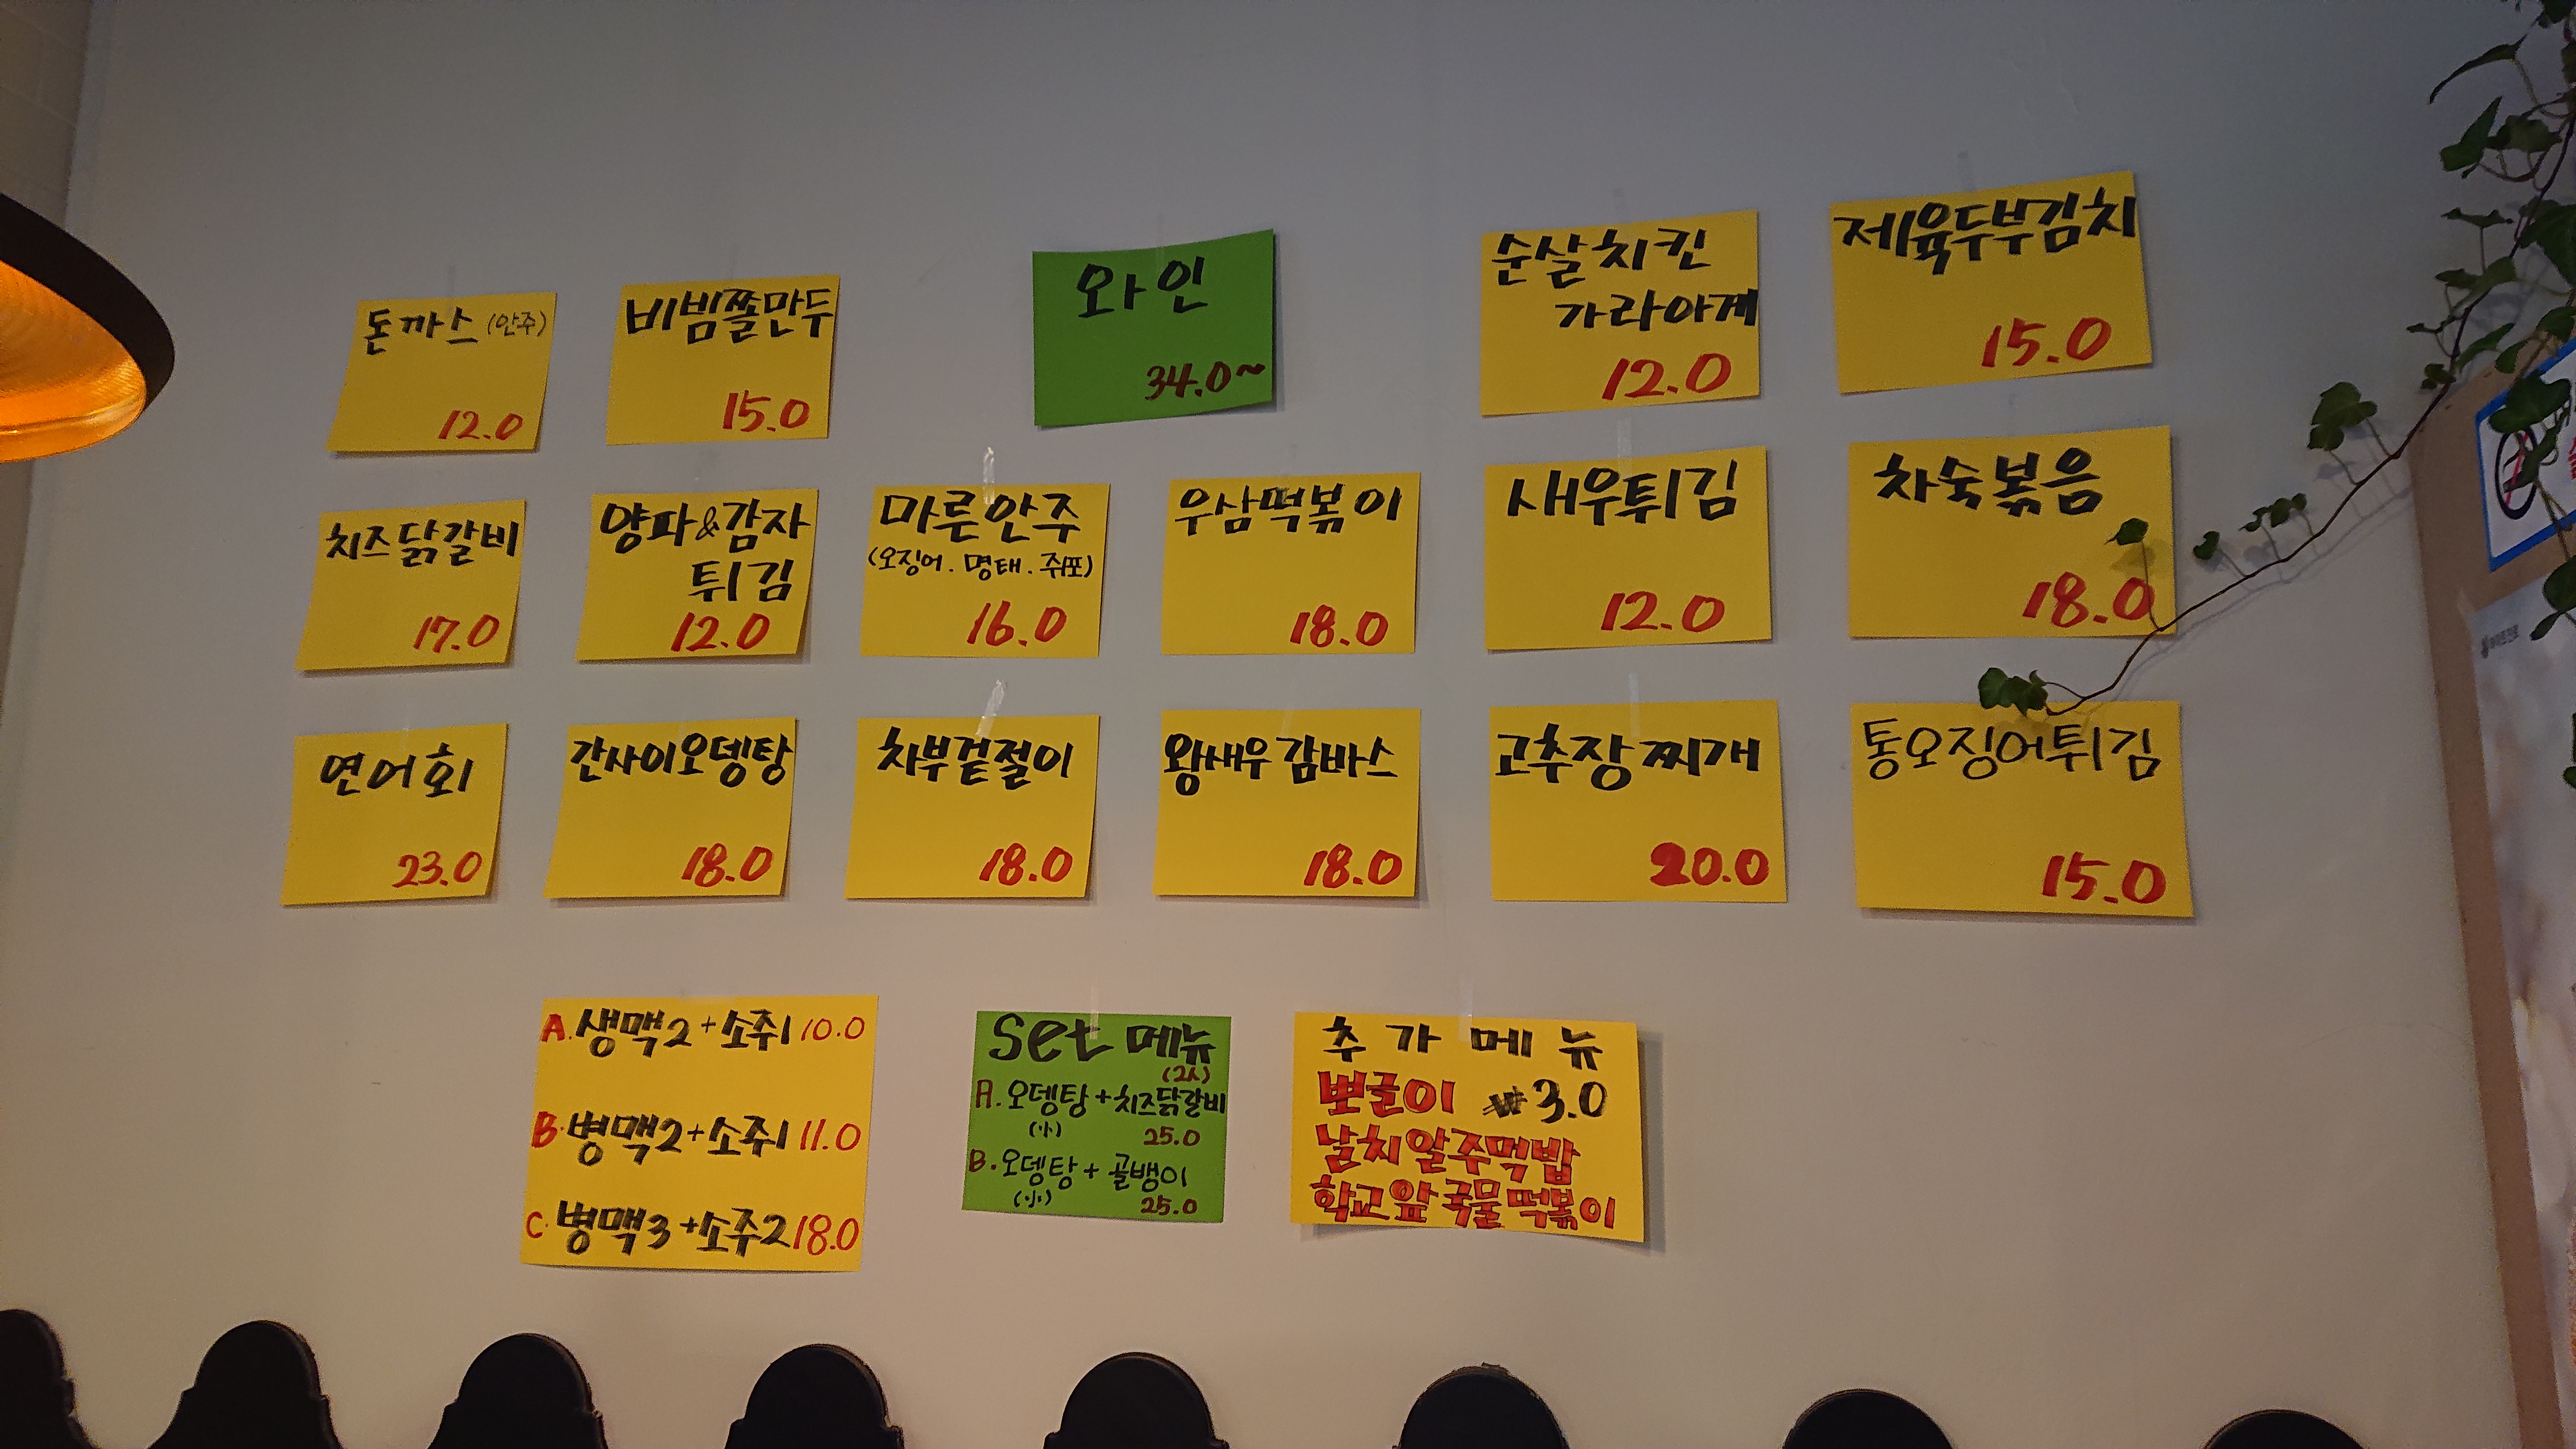 돈까스 (안주)
12.0
비빔쫄만두
15.0
와인
34.0~
순살치킨
가라아게
12.0
제육두부김치
15.0
치즈닭갈비
17.0
양파&감자
튀김
12.0
마른안주
(오징어. 명태. 쥐포)
16.0
우삼떡볶이
18.0
새우튀김
12.0
차숙볶음
18.0
연어회
23.0
간사이오뎅탕
18.0
차부겉절이
18.0
왕새우감바스
18.0
고추장찌개
20.0
통오징어튀김
15.0
A. 생맥2+소주1 10.0
B. 병맥2+소주1 11.0
C. 병맥3+소주2 18.0
Set 메뉴
(2人)
A. 오뎅탕+치즈닭갈비
(小) 25.0
B. 오뎅탕+골뱅이
(小) 25.0
추가메뉴
뽀글이 ₩3.0
날치알주먹밥
학교앞국물떡볶이